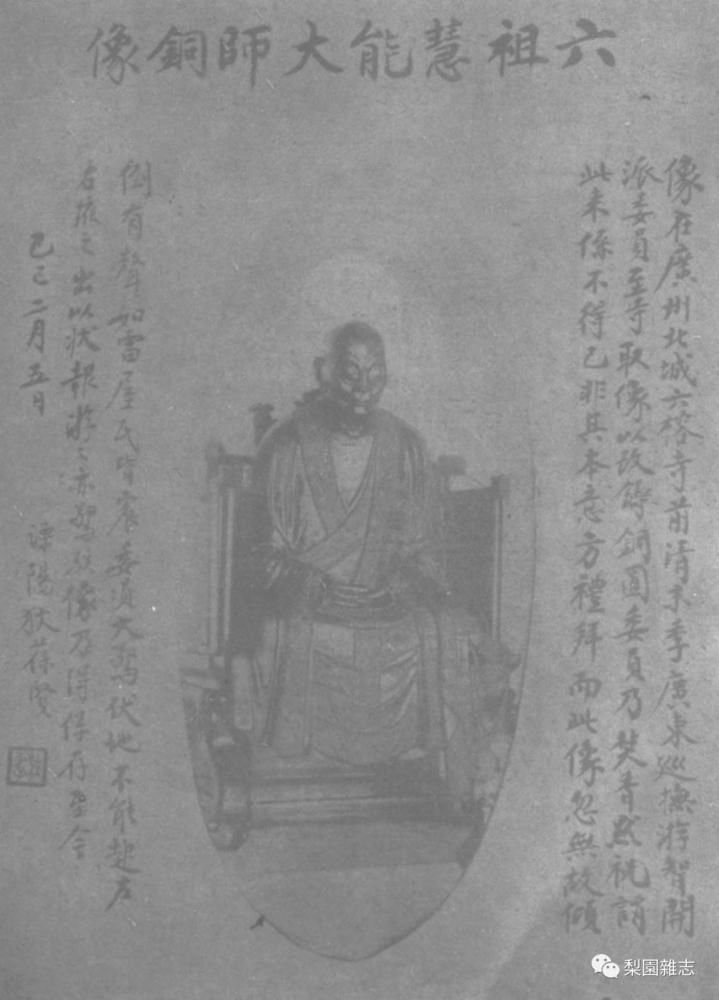 六祖慧能大師銅像
像在廣州北城六榕寺前清末季廣東巡撫游智開
派委員至寺取像以改鑄銅圓委員乃焚香默祝謂
此来係不得已非其本意方禮拜而此像忽無故傾
倒有聲如雷屋瓦皆震委員大驚伏地不能起左
右掖之出以状報游〻亦驚駭像乃得保存至今
己巳二月五日 溧陽狄葆賢
梨園雜志